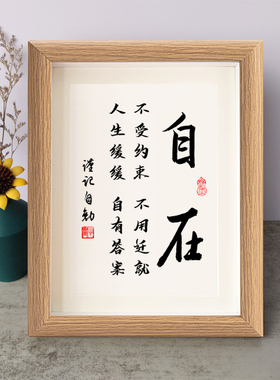 自在
不受约束 不用迁就
人生缓缓 自有答案
谨记自勉